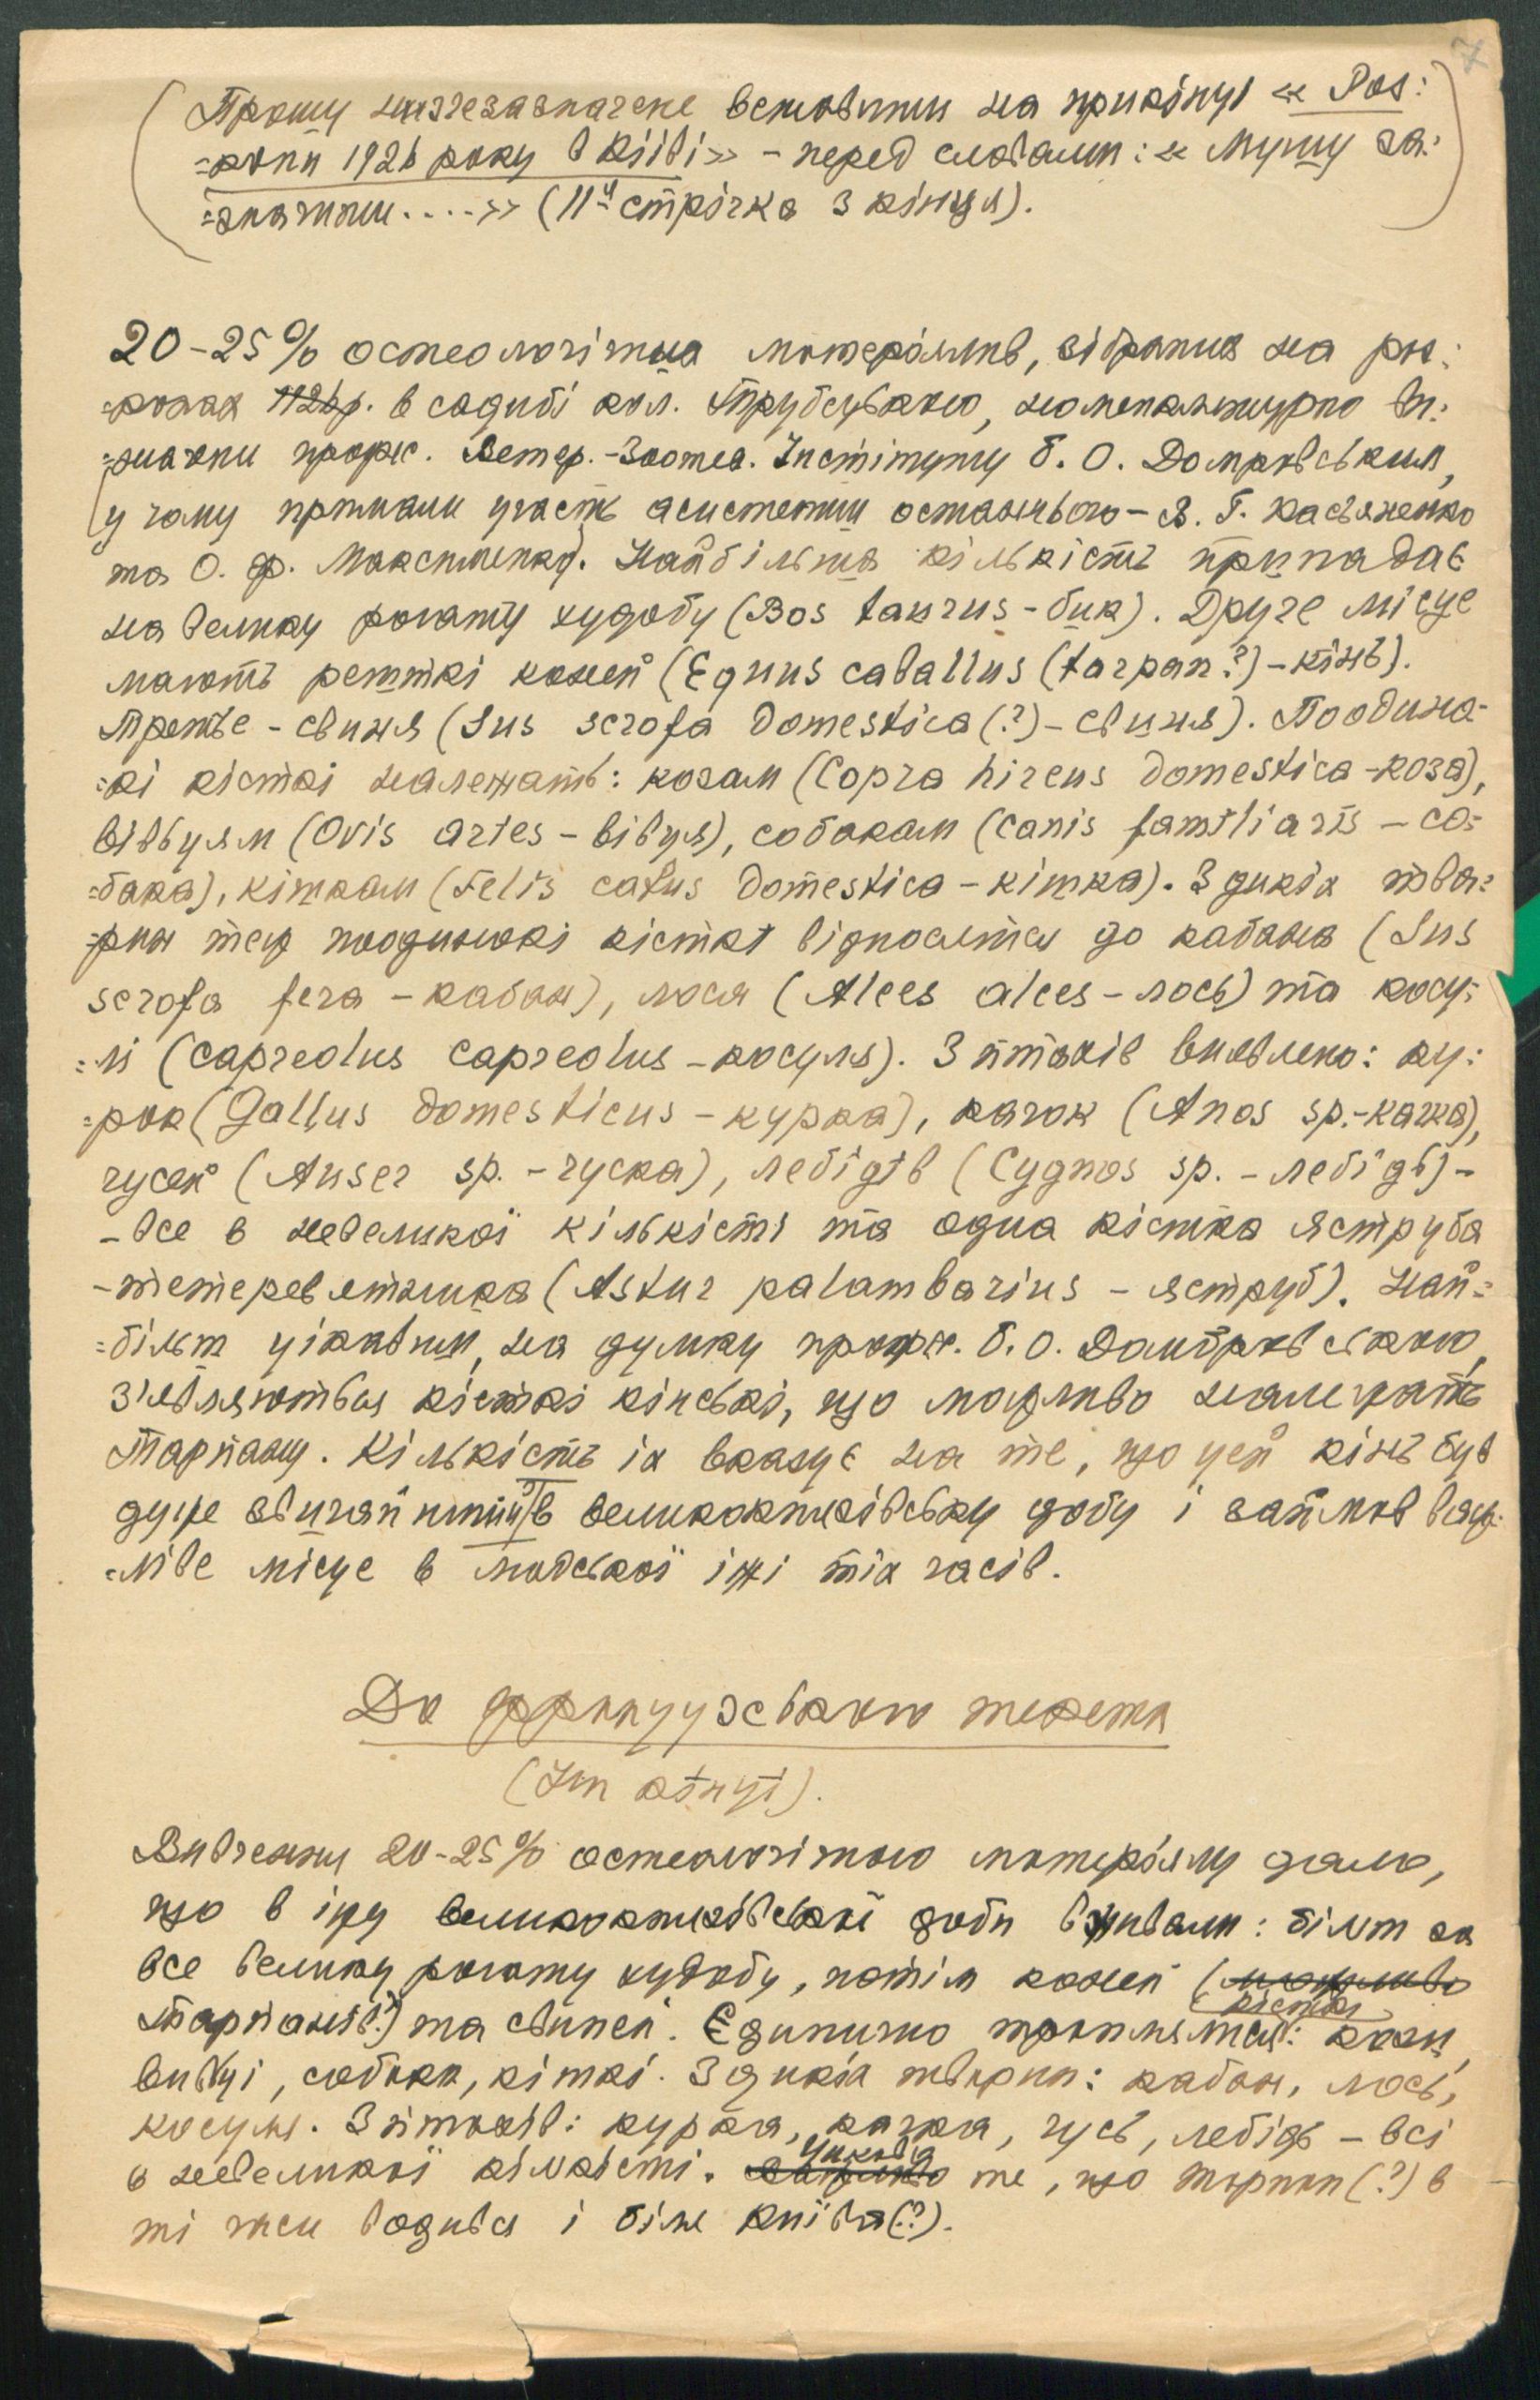 7
(Прошу нижчезазначене вставити на прикінці « Роз:
=копи 1926 року в Київі» – перед словами: « Мушу за:
=значити....» (11ч стрічка з кінця).
20–25% остеологічних матеріялів, зібраних на роз:
=копах 1926р. в садибі кол. Трубецького, номенклятурно ви:
=значки профес. Ветер.-Зоотех. Інстітуту Б. О. Домбровським,
у чому приймали участь асистенти останнього – В. Г. Касьяненко
та О. Ф. Максименко. Найбільша кількість припадає
на велику рогату худобу (Bos taurus – бик). Друге місце
мають рештки коней (Equus caballus (tarpan?) – кінь).
Третьє – свиня (Sus scrofa domestica (?) – свиня). Поодино-
=кі кісткі належать: козам (Capra hircus domestica – коза),
вівцям (Ovis aries – вівця), собакам (Canis familiaris – со=
=бака), кішкам (Felis catus domestica – кішка). З дикіх тва=
=рин теж поодинокі кісткі відносяться до кабана (Sus
scrofa fera – кабан), лося (Alces alces – лось) та косу=
=лі (Capreolus capreolus – косуля). З птахів виявлено: ку:
=рок (Gallus domesticus – курка), качок (Anas sp. – качка),
гусей (Anser sp. – гуска), лебідів (Cygnos sp. – лебідь) –
– все в невеликої кількісті та одна кістка яструба
– тетеревятника (Astur palambarius – яструб). Най=
=більш цікавим, на думку профес. Б. О. Домбровського,
з'являються кісткі кінські, що можливо належать
тарпану. Кількість іх вказує на те, що цей кінь був
дуже звичайний в великокнязівську добу і займав важ=
=ліве місце в людської їжі тіх часів.
До французського текста
(На кінці).
Вивчення 20–25% остеологічного матеріялу дало,
що в їжу великокнязівської доби вживали: більш за
все велику рогату худобу, потім коней (можливо
кісткі
тарпанів?) та свиней. Єдинично трапляться: кози,
вивці, собаки, кішкі. З дикіх тварин: кабан, лось,
косуля. З птахів: курка, качка, гусь, лебідь – всі
цікаво
в невеликої кількісті. те, що тарпан (?) в
ті часи водився і біля Київа (?).